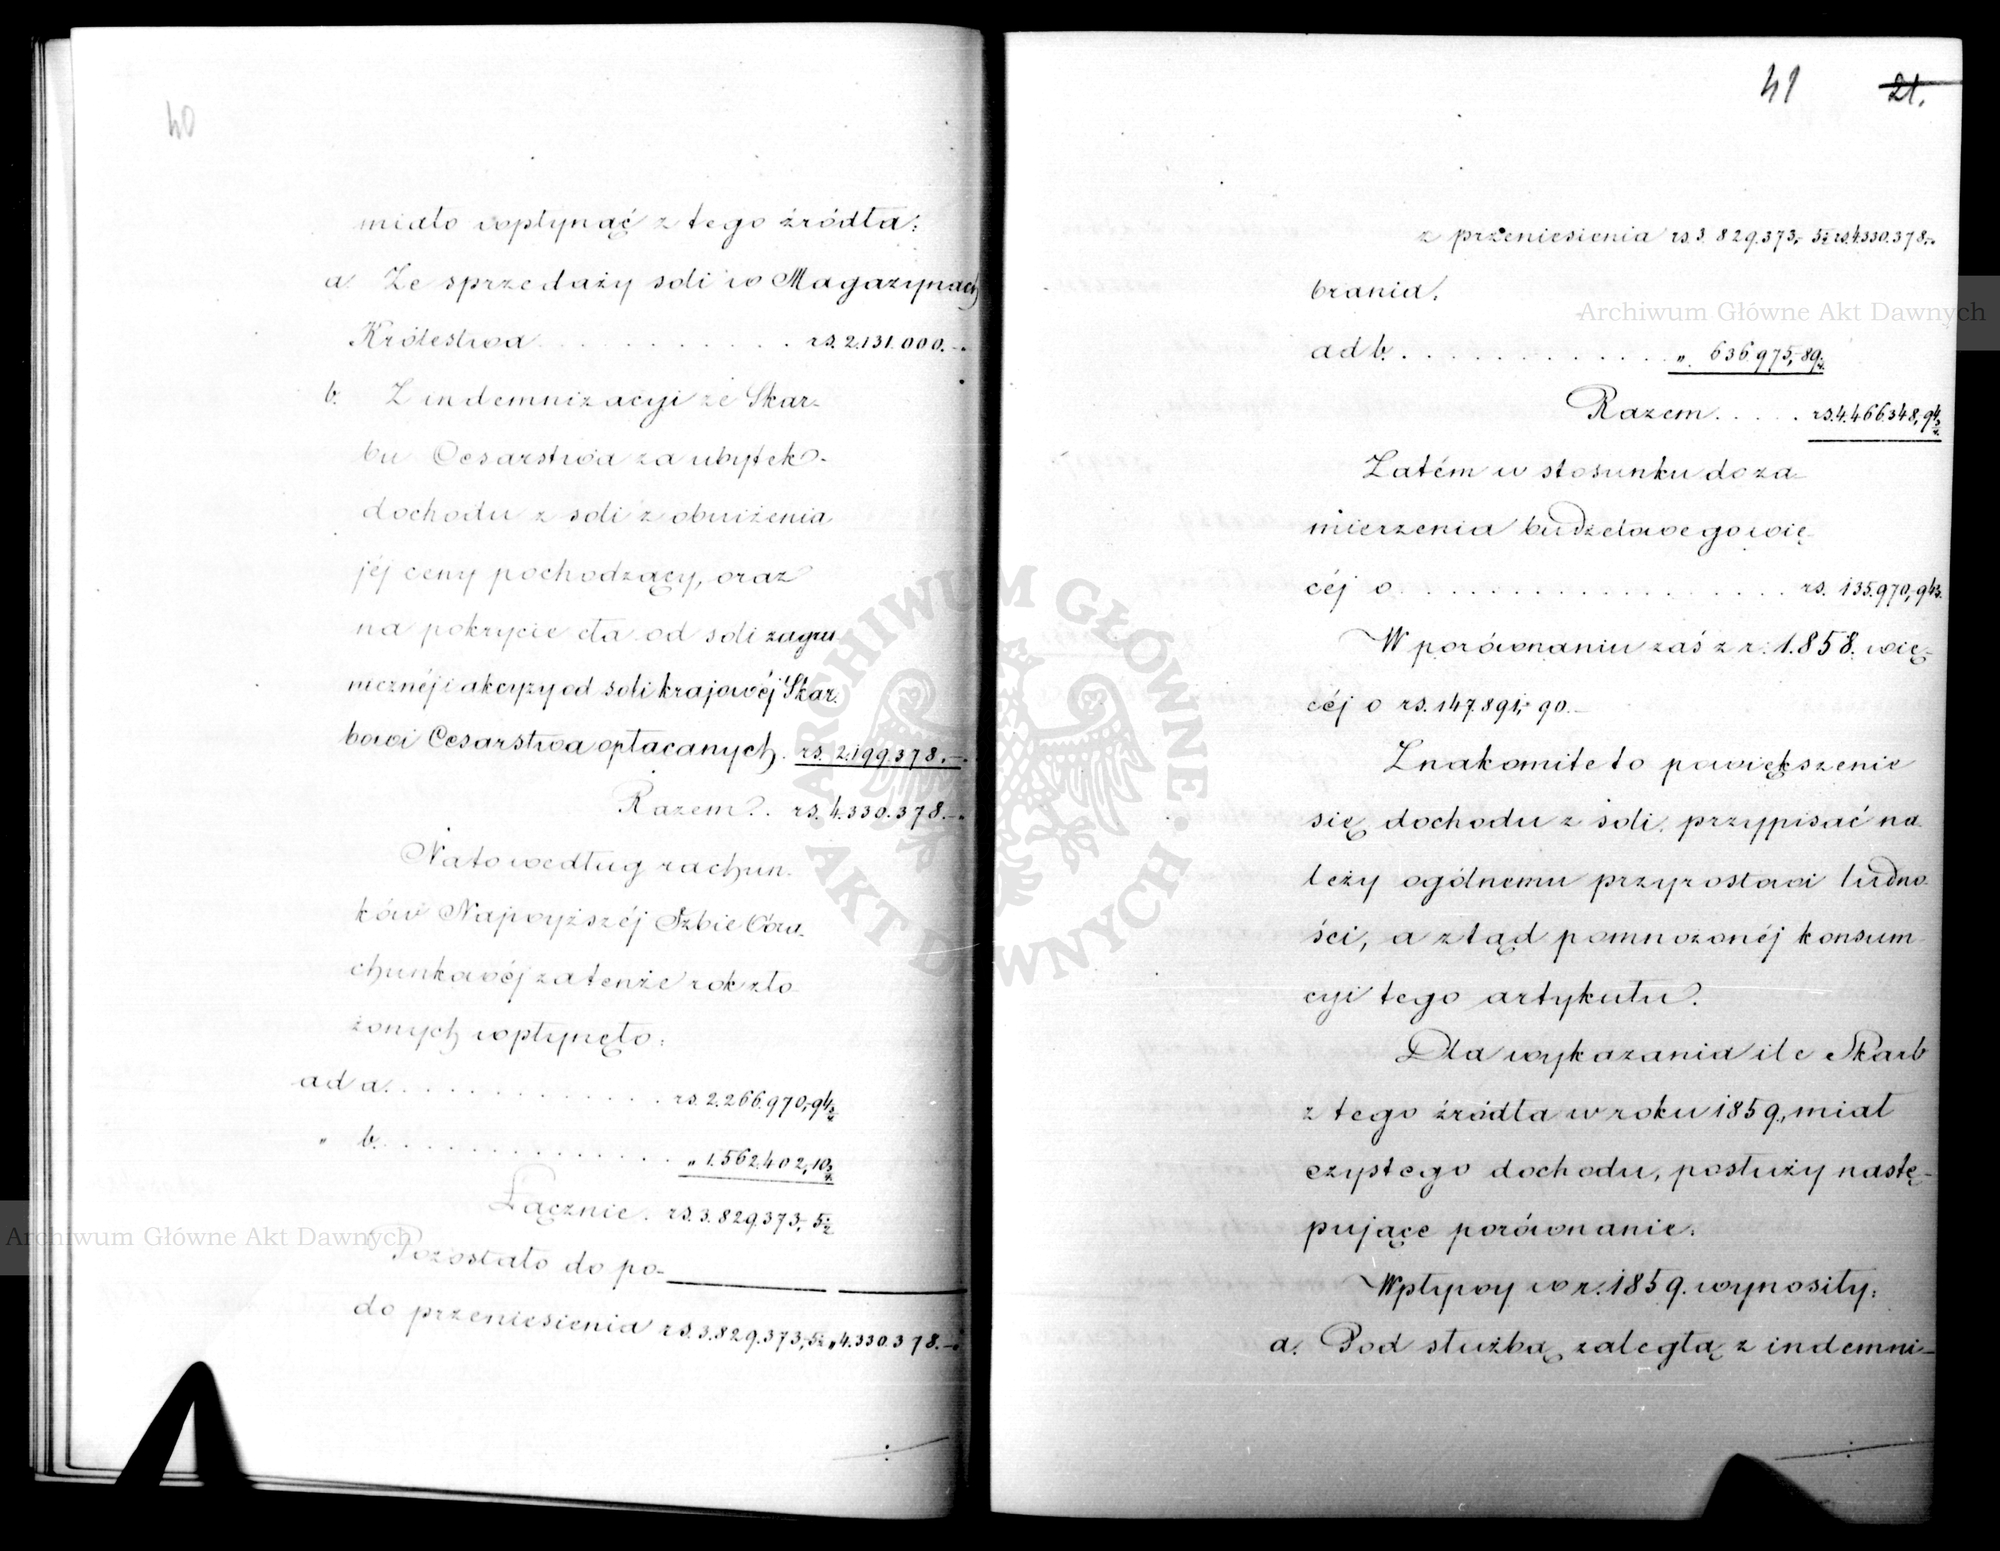 40
miało wpłynąć z tego źródła:
a. Ze sprzedaży soli w Magazynach
Królestwa . . . . . . . . . . . rs. 2.131.000.–
b. Z indemnizacyi ze Skar-
bu Cesarstwa za ubytek
dochodu z soli z obniżenia
jéj ceny pochodzący, oraz
na pokrycie cła od soli zagra
nicznéj i akcyzy od soli krajowéj Skar-
bowi Cesarstwa opłacanych. rs. 2.199.378.–
Razem . . rs. 4.330.378.–
Na to według rachun-
ków Najwyższéj Izbie Obra-
chunkowéj za tenże rok zło
żonych wpłynęło:
ad a. . . . . . . . . . . . . rs. 2.266.970,94½
„ b. . . . . . . . . . . . . „ 1.562.402,10¾
Łącznie. rs. 3.829.373,5¼
Pozostało do po-
do przeniesienia rs. 3.829.373,5¼ „ 4.330.378.–
41 21.
z przeniesienia rs. 3.829.373,5¼ rs. 4.330.378.–
brania.
ad b. . . . . . . . . . . . . „ 636.975,89½
Razem . . . . . rs. 4.466.348,94¾
Zatém w stosunku do za-
mierzenia budżetowego wię-
céj o . . . . . . . . . . . . . . . . . rs. 135.970,94¾
W porównaniu zaś z r. 1858. wię-
céj o rs. 147.891, 90.–
Znakomite to powiększenie
się dochodu z soli, przypisać na
leży ogólnemu przyrostowi ludno-
ści, a ztąd pomnożonéj konsum
cyi tego artykułu.
Dla wykazania ile Skarb
z tego źródła w roku 1859, miał
czystego dochodu, posłuży nastę-
pujące porównanie.
Wpływy w r. 1859. wynosiły:
a. Pod służbą zaległą z indemni-
Archiwum Główne Akt Dawnych
Archiwum Główne Akt Dawnych
ARCHIWUM GŁÓWNE AKT DAWNYCH